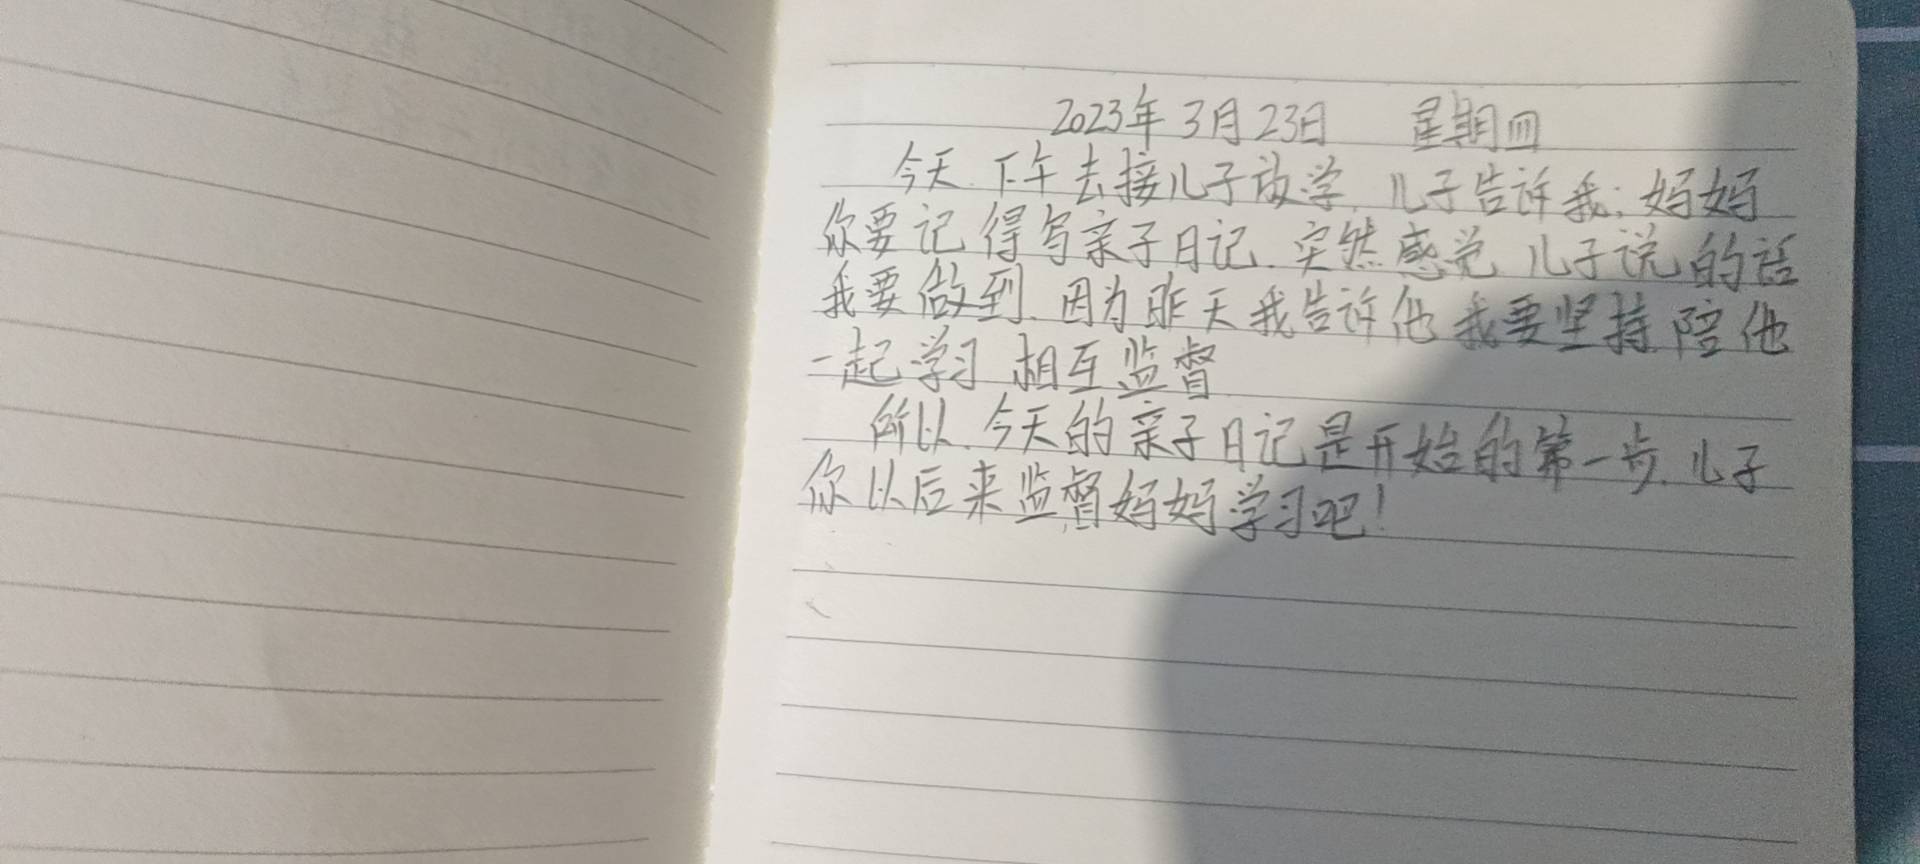 2023年3月23日 星期四
今天.下午去接儿子放学.儿子告诉我:妈妈
你要记得写亲子日记.突然感觉儿子说的话
我要做到.因为昨天我告诉他我要坚持陪他
一起学习 相互监督
所以.今天的亲子日记是开始的第一步.儿子
你以后来监督妈妈学习吧!